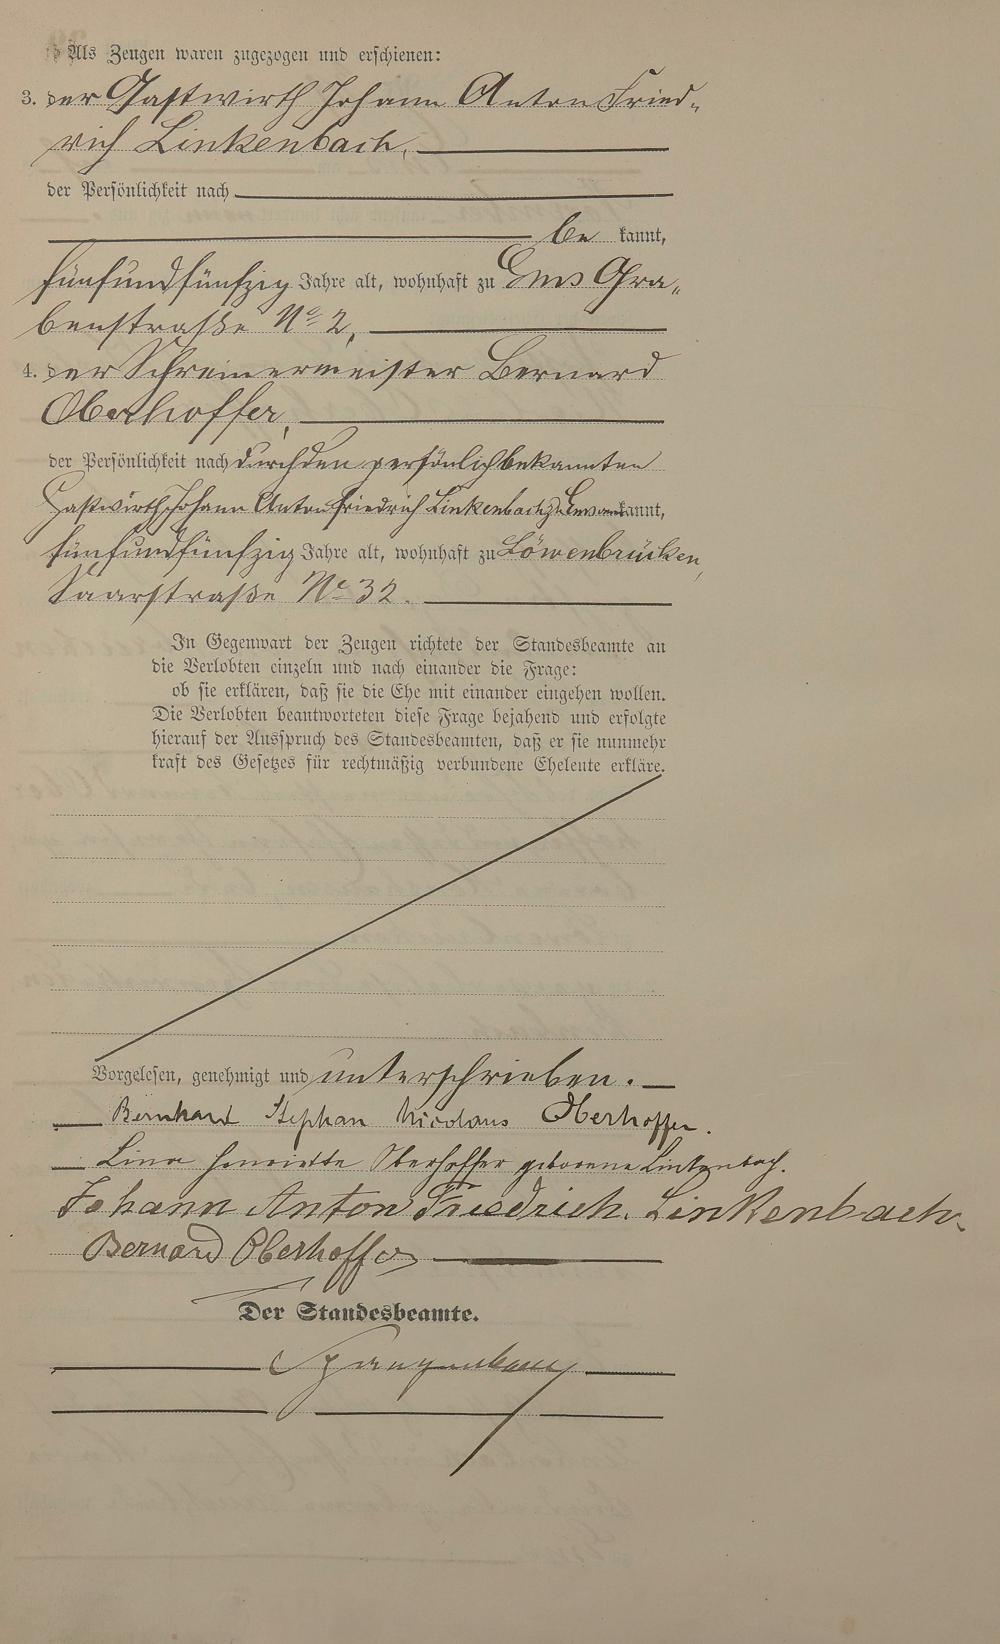 Als Zeugen waren zugezogen und erschienen:
3. der Gastwirth Johann Anton Fried-
rich Linkenbach,
der Persönlichkeit nach
be kannt,
fünfundfünfzig Jahre alt, wohnhaft zu Ems Gra-
benstraße No 2,
4. der Schreinermeister Bernard
Oberhoffer,
der Persönlichkeit nach durch den persönlich bekannten
Gastwirth Johann Anton Friedrich Linkenbach zu Ems aner kannt,
fünfundfünfzig Jahre alt, wohnhaft zu Löwenbrücken,
Saarstraße No 32.
In Gegenwart der Zeugen richtete der Standesbeamte an
die Verlobten einzeln und nach einander die Frage:
ob sie erklären, daß sie die Ehe mit einander eingehen wollen.
Die Verlobten beantworteten diese Frage bejahend und erfolgte
hierauf der Ausspruch des Standesbeamten, daß er sie nunmehr
kraft des Gesetzes für rechtmäßig verbundene Eheleute erkläre.
Vorgelesen, genehmigt und unterschrieben.
Bernhard Stephan Nicolaus Oberhoffer.
Lina Henriette Oberhoffer geborene Linkenbach.
Johann Anton Friedrich. Linkenbach.
Bernard Oberhoffer
Der Standesbeamte.